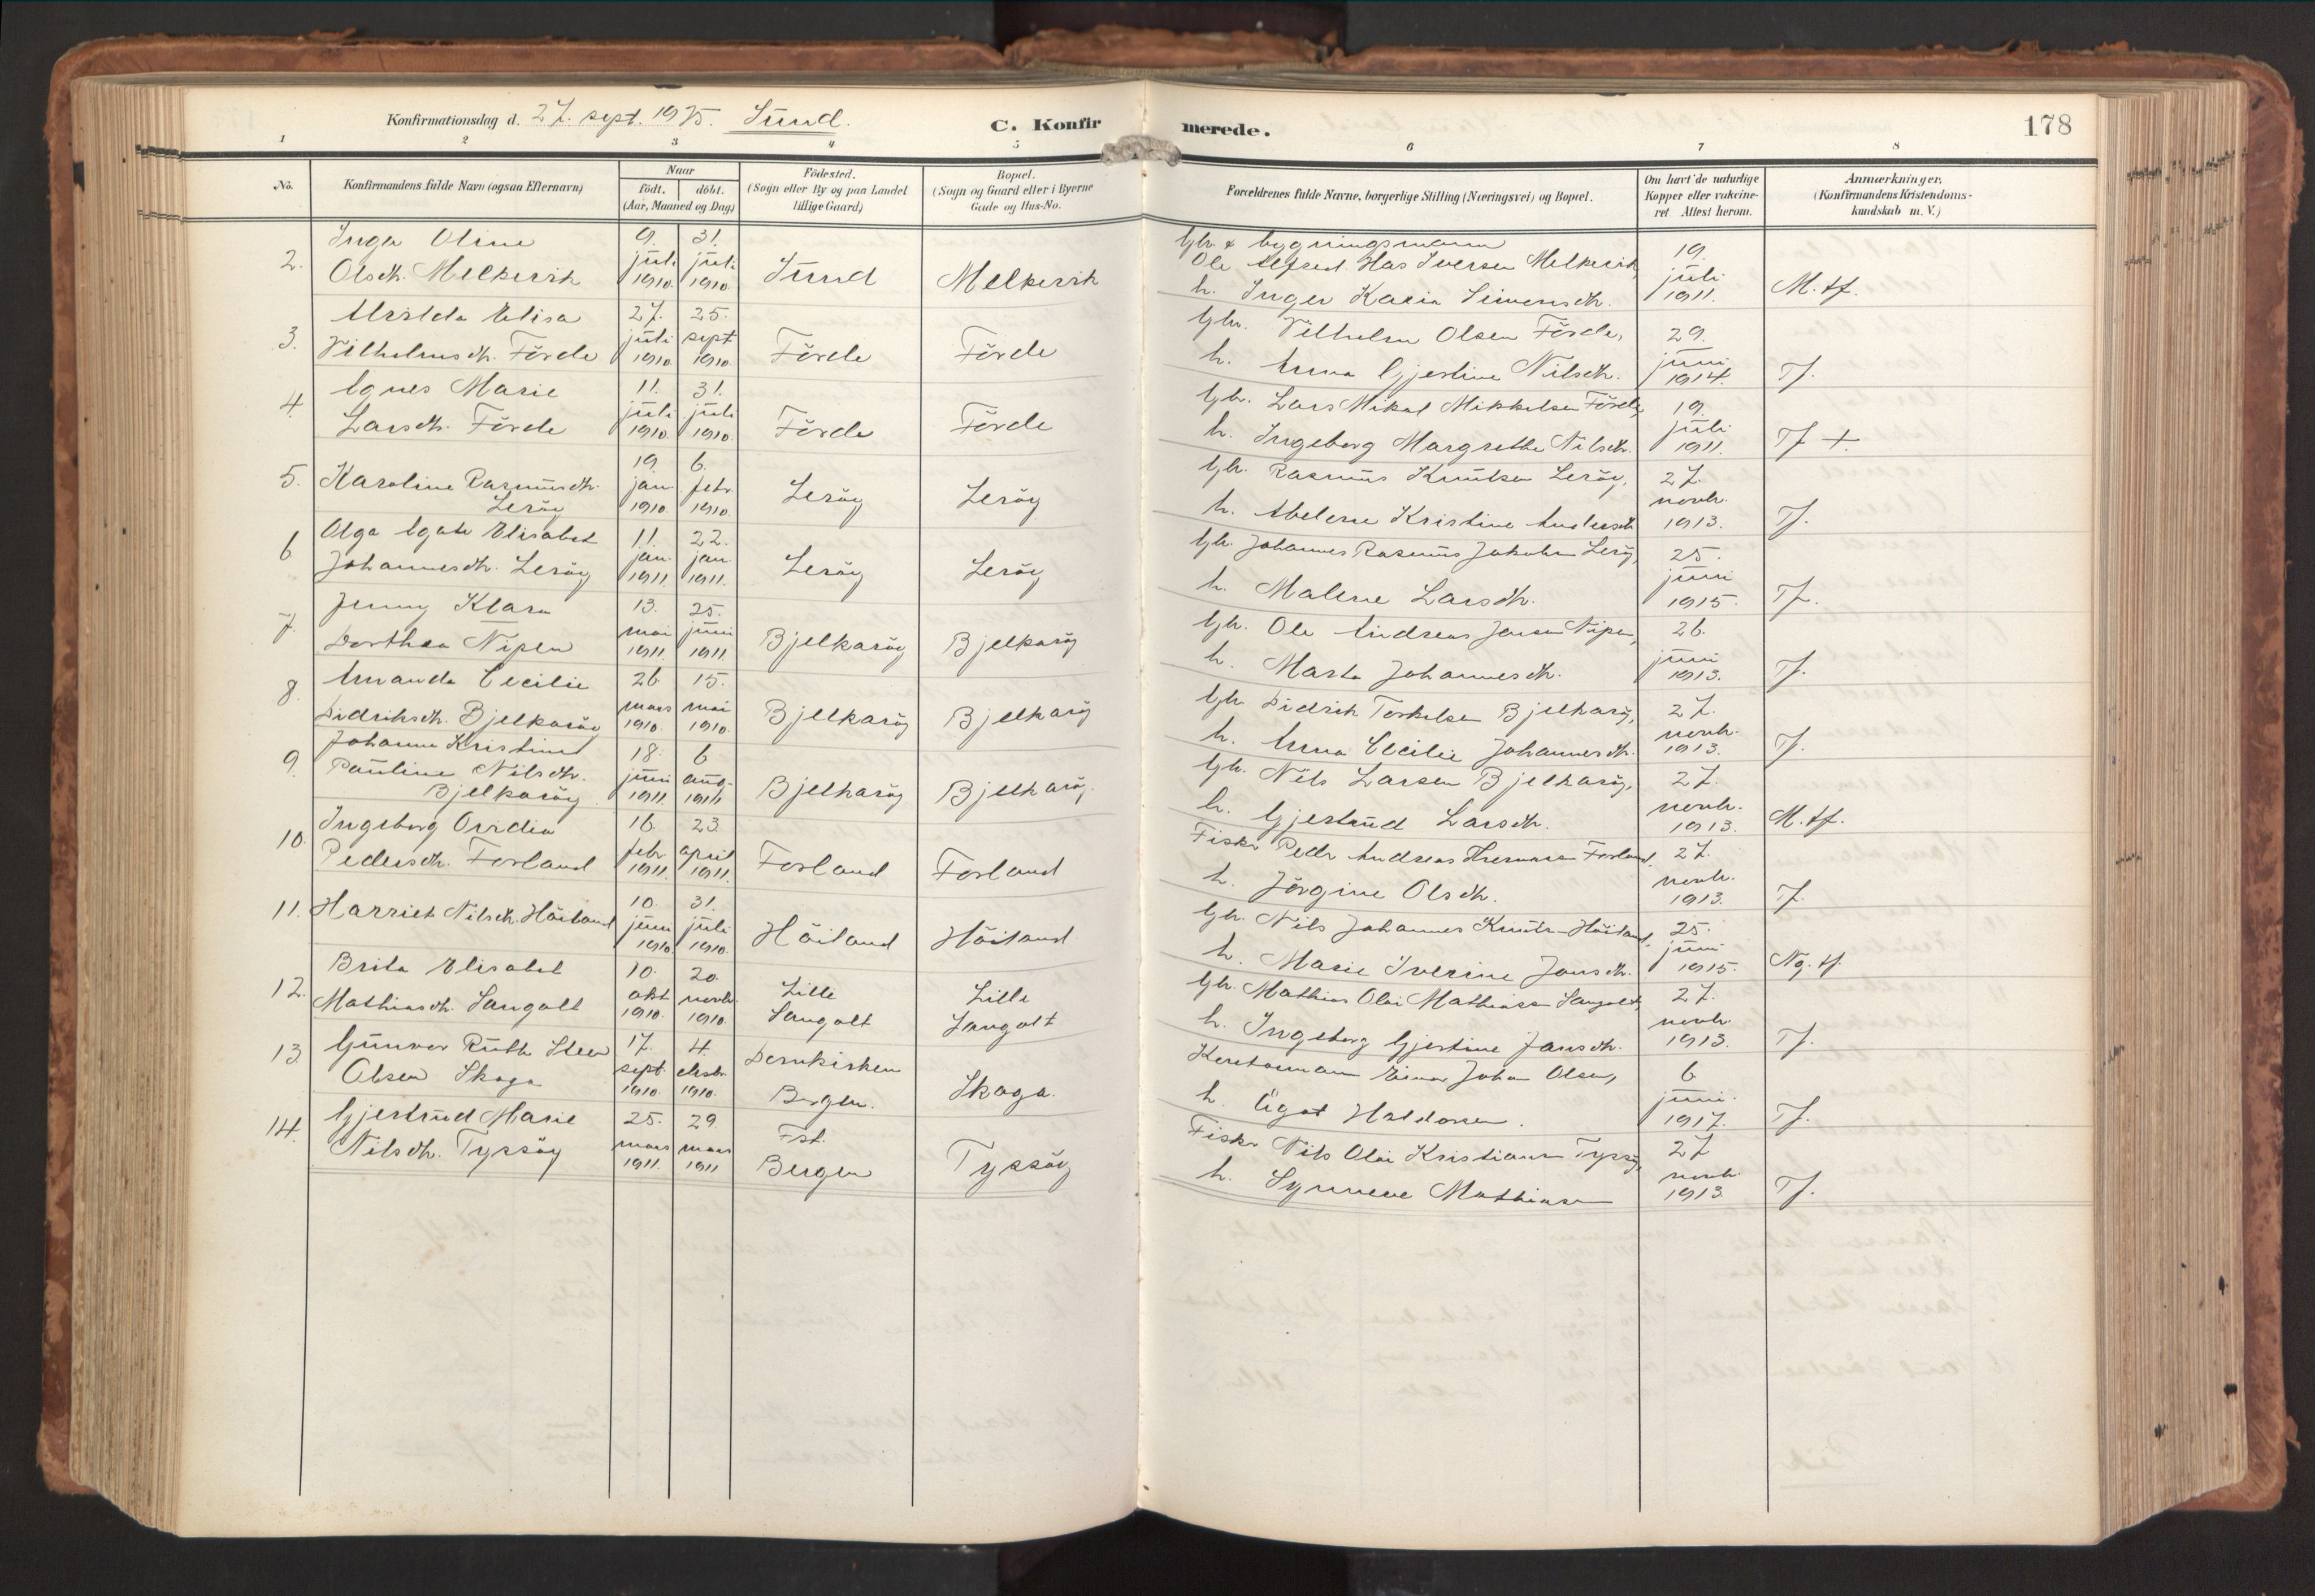 Konfirmationsdag d. 27. sept. 1925. Sund.
C. Konfirmerede.
178
1 2 3 4 5 6 7 8
No.
Konfirmandens fulde Navn (ogsaa Efternavn)
Naar
født. døbt.
(Aar, Maaned og Dag)
Fødested.
(Sogn eller By og paa Landet
tillige Gaard)
Bopæl.
(Sogn og Gaard eller i Byerne
Gade og Hus-No.
Forældrenes fulde Navne, borgerlige Stilling (Næringsvei) og Bopæl.
Om havt de naturlige
Kopper eller vaksine-
ret Attest herom.
Anmærkninger,
(Konfirmandens Kristendoms-
kundskab m. V.)
2. Inga Oline
Olsdtr. Melkevik
9. juli 1910. 31. juli 1910.
Sund
Melkevik
Gbr. & bygningsmann
Ole Alfred Iversen Melkevik,
h. Inger Karia Simonsdtr.
19. juli 1911.
M.tf.
3. Alvilda Elisa
Vilhelmsdtr. Förde
27. juli 1910 25. sept 1910.
Förde
Förde
Gbr. Vilhelm Olsen Förde,
h. Anna Gjertine Nilsdtr.
29. juni 1914.
Tf.
4. Agnes Marie
Larsdtr. Förde
11. juli 1910. 31. juli 1910.
Förde
Förde
Gbr. Lars Mikal Mikkelsen Förde,
h. Ingeborg Margrethe Nilsdtr.
19. juli 1911.
Tf +
5. Karoline Rasmusdtr.
Leröy
19. jan. 1910. 6. febr. 1910.
Leröy
Leröy
Gbr. Rasmus Knutsen Leröy,
h. Abelone Kristine Andersdtr.
27. novbr. 1913.
Tf.
6 Olga Agate Elisabet
Johannesdtr. Leröy
11. jan. 1911. 22. jan. 1911.
Leröy
Leröy
Gbr. Johannes Rasmus Jakobsen Leröy,
h. Malene Larsdtr.
25. juni 1915.
Tf.
7. Jenny Klara
Dorthea Nipen
13. mai 1911. 25. juni 1911.
Bjelkaröy
Bjelkaröy
Gbr. Ole Andreas Jensen Nipen,
h. Marta Johannesdtr.
26. juni 1913.
Tf.
8. Amanda Cecilie
Didriksdtr. Bjelkaröy
26. mars 1910. 15. mai 1910.
Bjelkaröy
Bjelkaröy
Gbr. Didrik Torkelsen Bjelkaröy,
h. Anna Cecilie Johannesdtr.
27. novbr. 1913.
Tf.
9. Johanna Kristine
Pauline Nilsdtr.
Bjelkaröy
18. juni 1911. 6 aug. 1911.
Bjelkaröy
Bjelkaröy.
Gbr. Nils Larsen Bjelkaröy,
h. Gjertrud Larsdtr.
27. novbr. 1913.
M.tf.
10. Ingeborg Ovidia
Pedersdtr. Forland
16. febr. 1911. 23. april 1911.
Forland
Forland
Fisker Peder Andreas Hermansen Forland,
h. Jörgine Olsdtr.
27. novbr. 1913.
Tf.
11. Harriet Nilsdtr. Höiland
10. juni 1910. 31. juli 1910.
Höiland
Höiland
Gbr. Nils Johannes Knuts. Höiland,
h. Marie Iverine Jonsdtr.
25. juni 1915.
Ng. tf.
12. Brita Elisabet
Mathiasdtr. Sangolt
10. okt 1910. 20. novbr. 1910.
Lille
Sangolt
Lille
Sangolt
Gbr. Mathias Olai Mathiasen Sangolt,
h. Ingeborg Gjertine Jansdtr.
27. novbr. 1913.
Tf.
13 Gunvor Ruth Steen
Olsen Skoga
17. sept 1910. 4. desbr. 1910.
Domkirken
Bergen.
Skoga.
Kontormann Einar Johan Olsen,
h. Agot Haldorsen.
6 juni 1917.
Tf.
14. Gjertrud Marie
Nilsdtr. Tyssöy
25. mars 1911. 29. mars 1911
Fst.
Bergen
Tyssöy
Fisker Nils Olai Kristiansen Tyssöy,
h. Synneve Mathiasen
27 novbr. 1913.
Tf.